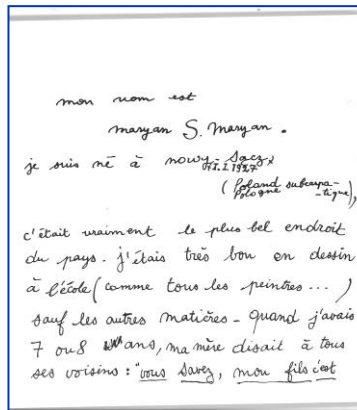 mon nom est
maryan S. maryan.
je suis né à nowy-Sącz,
1.I.1927
(Poland subcarpa-
Pologne -tique),
c'était vraiment le plus bel endroit
du pays. j'étais très bon en dessin
à l'école (comme tous les peintres...)
sauf les autres matières - Quand j'avais
7 ou 8 ans, ma mère disait à tous
ses voisins : "vous savez, mon fils c'est